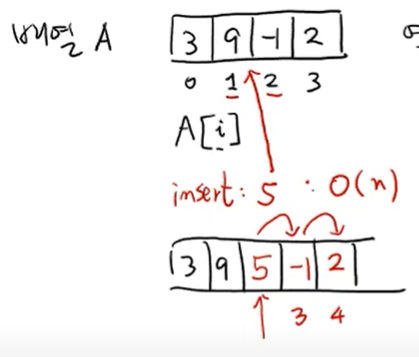 A 3 9 -1 2
0 1 2 3
A[i]
insert: 5 : O(n)
3 9 5 -1 2
3 4